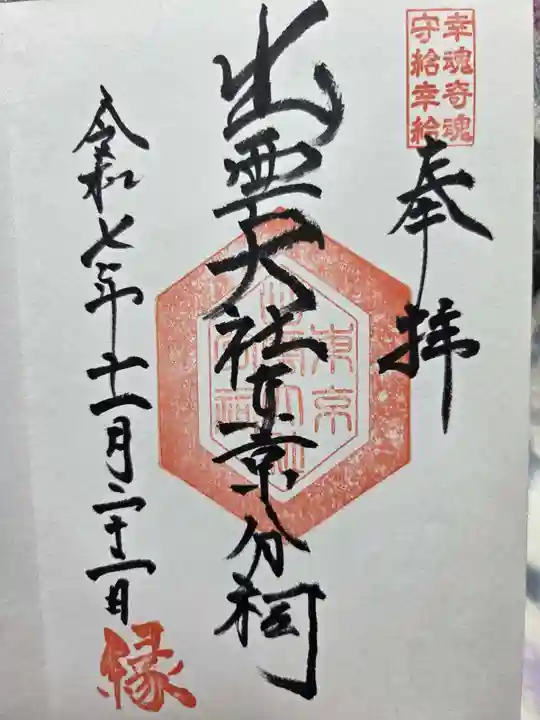 幸魂奇魂
守給幸給
奉拝
出雲大社東京分祠
東京
出雲大社
分祠
令和七年十一月二十一日
縁